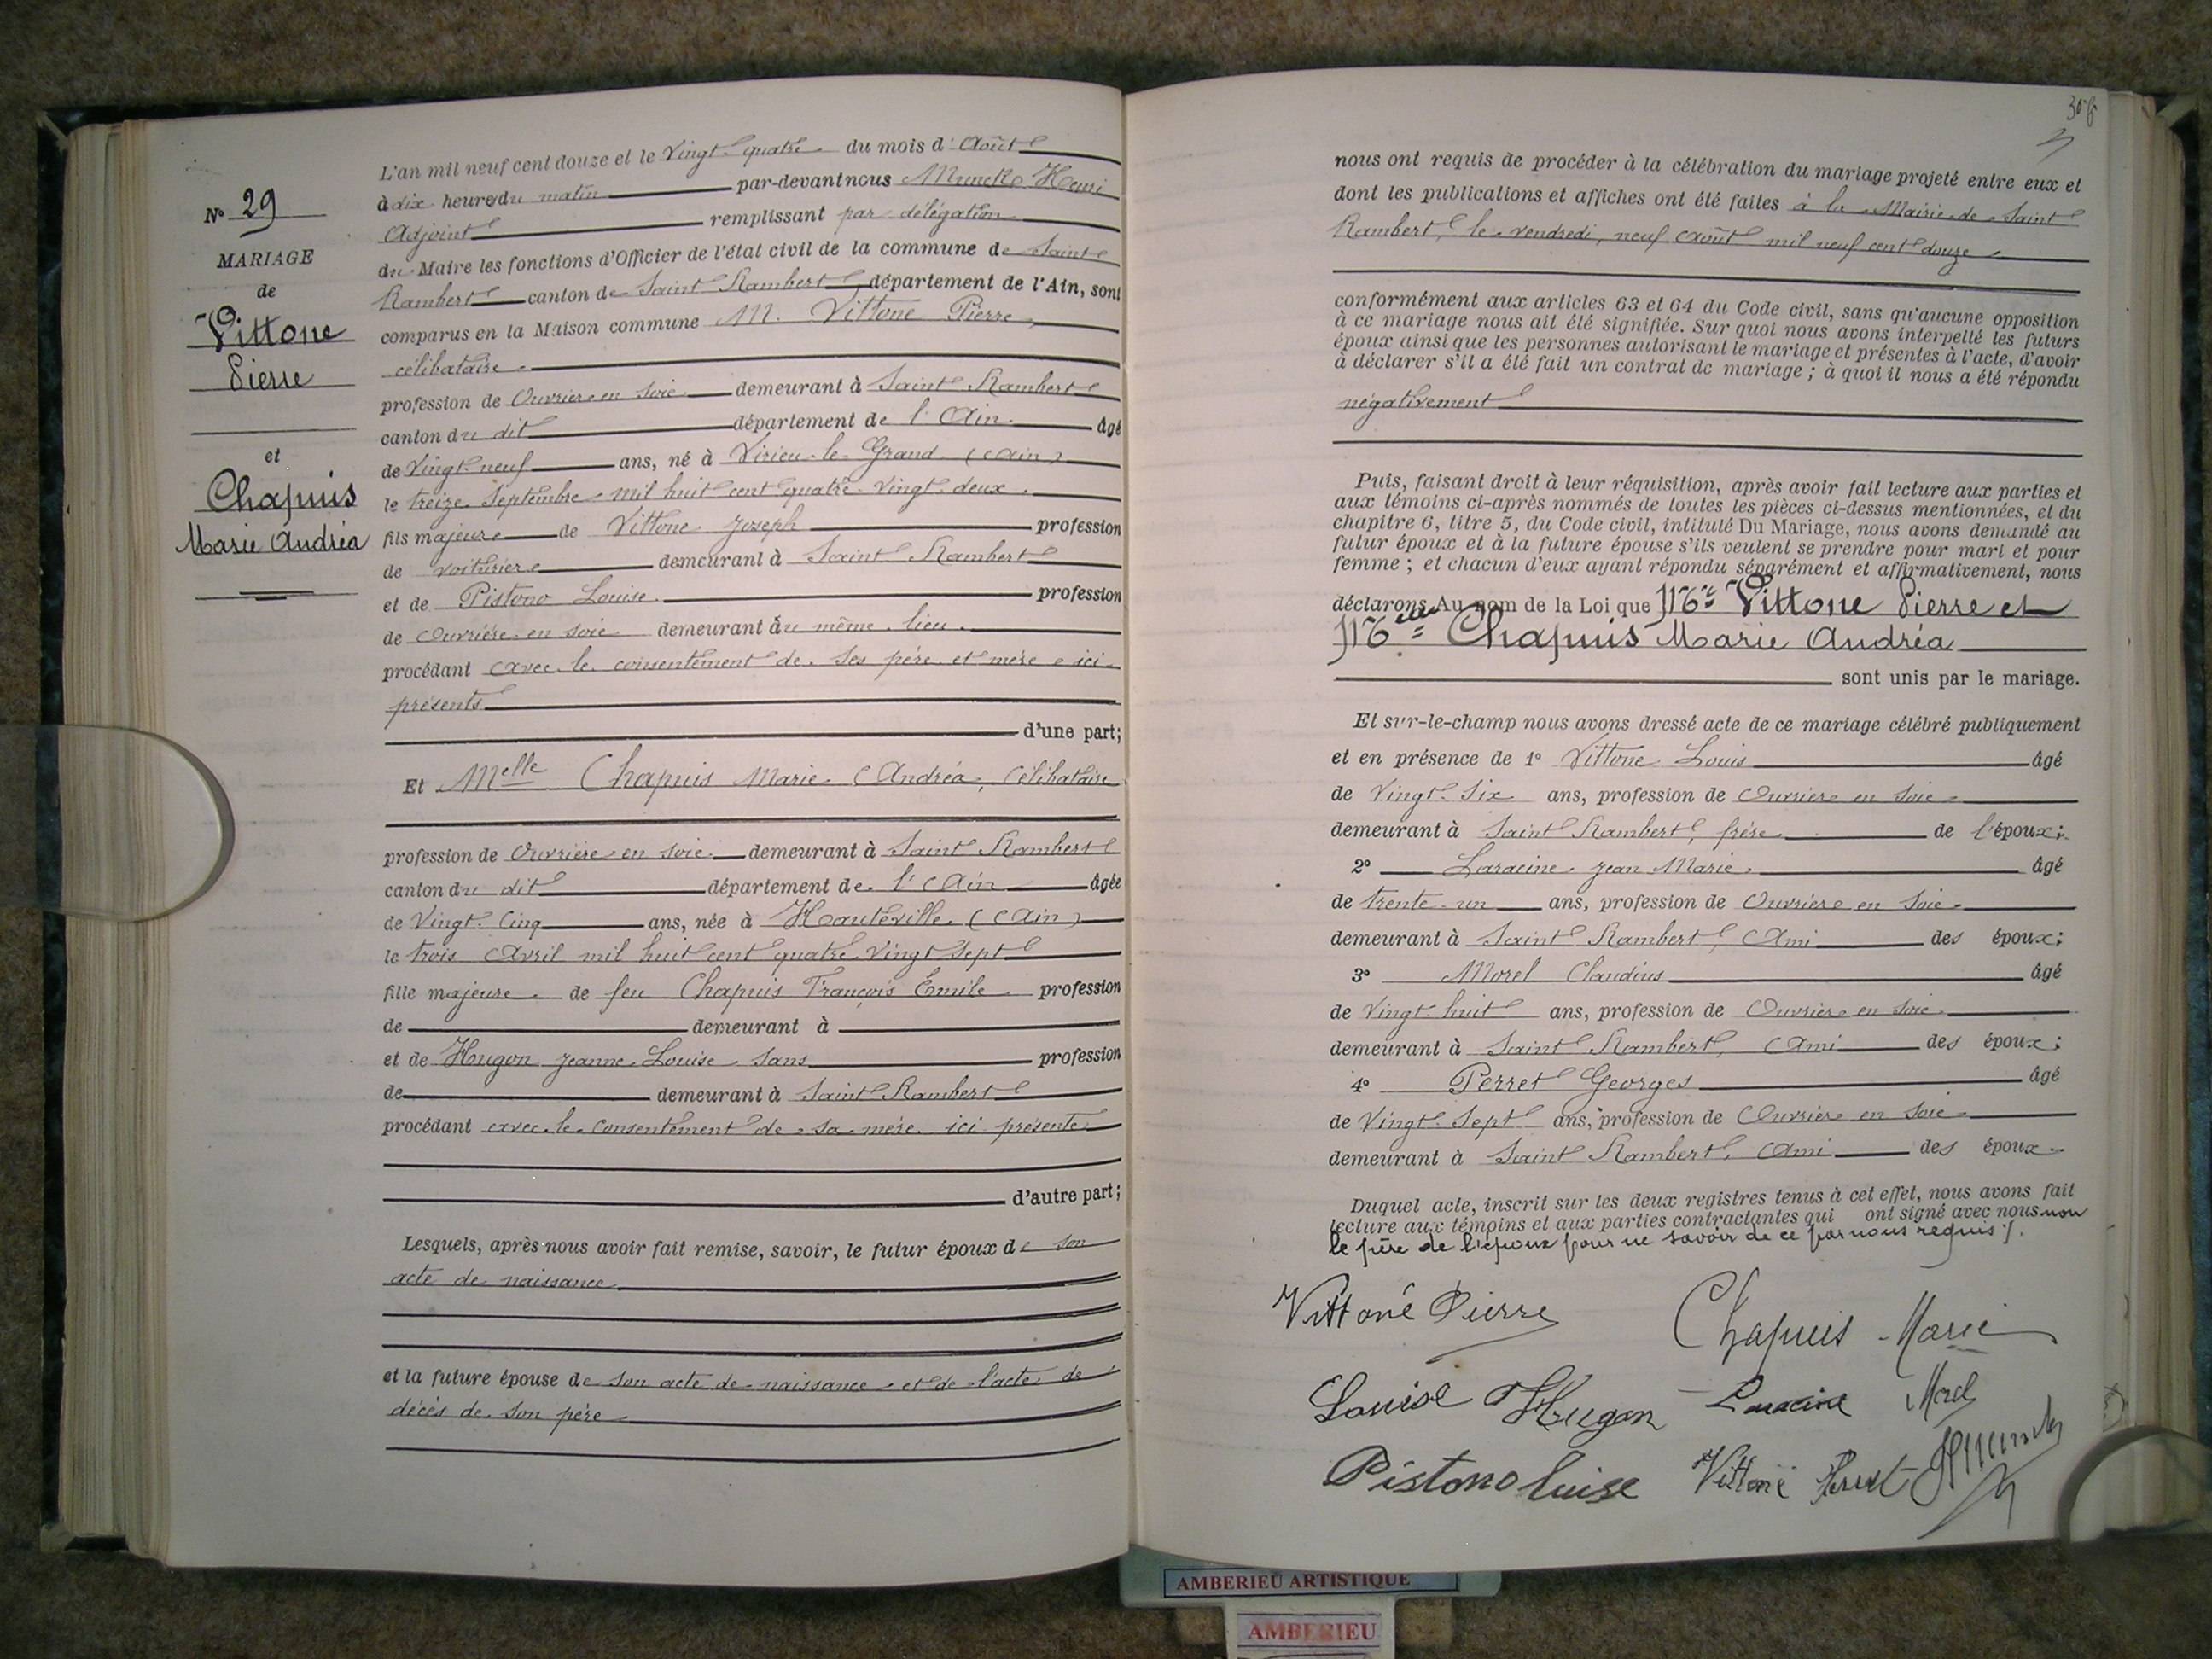 N° 29
MARIAGE
de
Vittone
Pierre
et
Chapuis
Marie Andréa
L'an mil neuf cent douze et le Vingt-quatre du mois d'Août
à dix heures du matin par-devant nous Munck Henri
Adjoint remplissant par délégation
du Maire les fonctions d'Officier de l'état civil de la commune de Saint
Rambert canton de Saint Rambert, département de l'Ain, sont
comparus en la Maison commune M. Vittone Pierre,
célibataire
profession de Ouvrier en soie demeurant à Saint Rambert
canton du dit département de l'Ain âgé
de Vingt-neuf ans, né à Virieu-le-Grand (Ain)
le treize Septembre mil huit cent quatre-vingt-deux
fils majeur de Vittone Joseph profession
de voiturier demeurant à Saint Rambert
et de Pistono Louise profession
de ouvrière en soie demeurant au même lieu
procédant avec le consentement de ses père et mère ici
présents
d'une part;
Et Melle Chapuis Marie Andréa, Célibataire
profession de Ouvrière en soie demeurant à Saint Rambert
canton du dit département de l'Ain âgée
de Vingt-Cinq ans, née à Hauteville (Ain)
le trois Avril mil huit cent quatre Vingt Sept
fille majeure de feu Chapuis François Emile profession
de demeurant à
et de Hugon Jeanne Louise sans profession
de demeurant à Saint Rambert
procédant avec le Consentement de sa mère ici présente
d'autre part;
Lesquels, après nous avoir fait remise, savoir, le futur époux de son
acte de naissance
et la future épouse de son acte de naissance et de l'acte de
décès de son père
nous ont requis de procéder à la célébration du mariage projeté entre eux et
dont les publications et affiches ont été faites à la Mairie de Saint
Rambert, le vendredi, neuf Août mil neuf cent douze
conformément aux articles 63 et 64 du Code civil, sans qu'aucune opposition
à ce mariage nous ait été signifiée. Sur quoi nous avons interpellé les futurs
époux ainsi que les personnes autorisant le mariage et présentes à l'acte, d'avoir
à déclarer s'il a été fait un contrat de mariage ; à quoi il nous a été répondu
négativement
Puis, faisant droit à leur réquisition, après avoir fait lecture aux parties et
aux témoins ci-après nommés de toutes les pièces ci-dessus mentionnées, et du
chapitre 6, titre 5, du Code civil, intitulé Du Mariage, nous avons demandé au
futur époux et à la future épouse s'ils veulent se prendre pour mari et pour
femme ; et chacun d'eux ayant répondu séparément et affirmativement, nous
déclarons Au nom de la Loi que Mr Vittone Pierre et
Melle Chapuis Marie Andréa
sont unis par le mariage.
Et sur-le-champ nous avons dressé acte de ce mariage célébré publiquement
et en présence de 1° Vittone Louis âgé
de Vingt-Six ans, profession de Ouvrier en soie
demeurant à Saint Rambert, frère de l'époux;
2° Laracine Jean Marie âgé
de trente-un ans, profession de Ouvrier en soie
demeurant à Saint Rambert, Ami des époux;
3° Morel Claudius âgé
de Vingt-huit ans, profession de Ouvrier en soie
demeurant à Saint Rambert, Ami des époux;
4° Perret Georges âgé
de Vingt-Sept ans, profession de Ouvrier en soie
demeurant à Saint Rambert, Ami des époux
Duquel acte, inscrit sur les deux registres tenus à cet effet, nous avons fait
lecture aux témoins et aux parties contractantes qui ont signé avec nous non
le père de l'époux pour ne savoir de ce par nous requis ./.
Vittoné Pierre Chapuis Marie
Louise Hugon Laracine Morel
Pistono luise Vittone Perret
AMBERIEU ARTISTIQUE
AMBERIEU